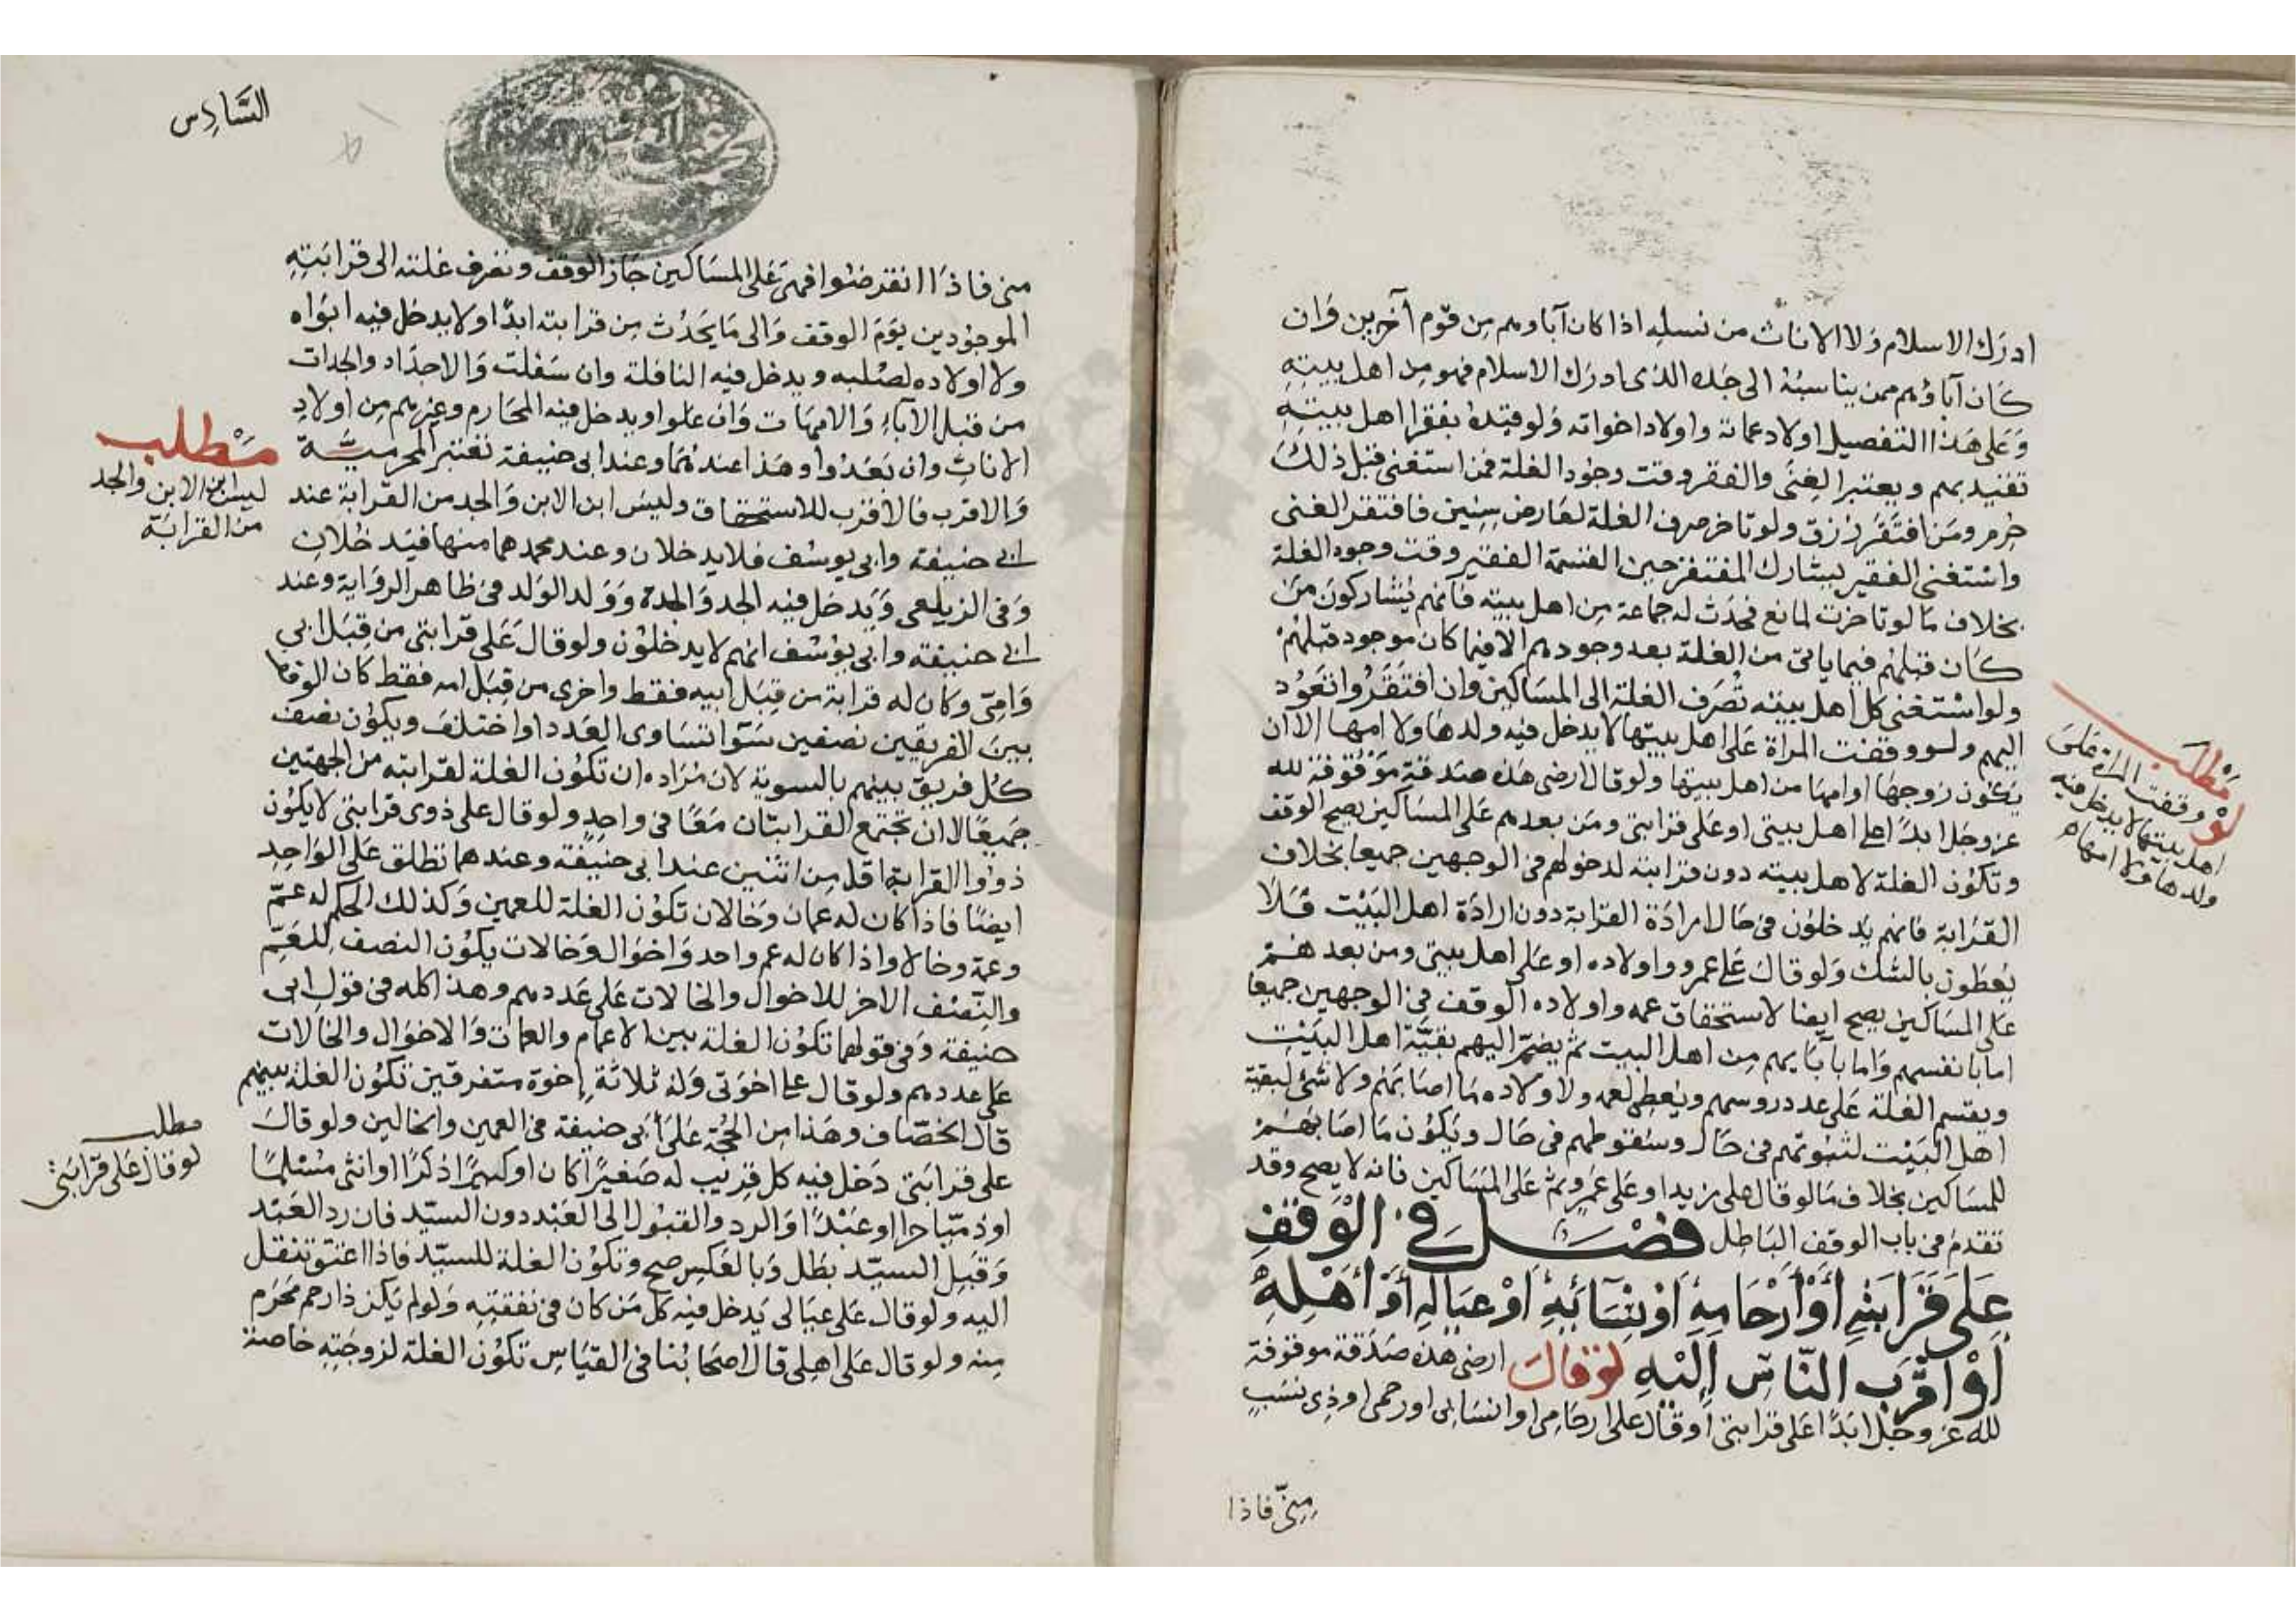 ادرك الاسلام ولا الاناث من نسله اذا كان آباوهم من قوم آخرين وان
كان آباؤهم ممن يناسبه الى جده الذى ادرك الاسلام فهو من اهل بيته
وعلى هذا التفصيل اولاد عماته واولاد اخواته ولو قيده بفقرا اهل بيته
تقيد بهم ويعتبر الغنى والفقر وقت وجود الغلة فمن استغنى قبل ذلك
حرم ومن افتقر رزق ولو تاخر صرف الغلة لعارض سنين فافتقر الغنى
واستغنى الفقير يشارك المفتقر حين القسمة الفقير وقت وجود الغلة
بخلاف ما لو تاخرت لمانع فحدث له جماعة من اهل بيته فانهم يشاركون من
كان قبلهم فيما ياتى من الغلة بعد وجودهم الا فيما كان موجود قبلهم
ولو استغنى كل اهل بيته تصرف الغلة الى المساكين وان افتقروا تعود
اليهم ولو وقفت المراة على اهل بيتها لا يدخل فيه ولدها ولا امها الا ان
يكون زوجها او امها من اهل بيتها ولو قال ارضى هذه صدقة موقوفة لله
عز وجل ابدا على اهل بيتى او على قرابتى ومن بعدهم على المساكين يصح الوقف
وتكون الغلة لاهل بيته دون قرابته لدخولهم فى الوجهين جميعا بخلاف
القرابة فانهم يدخلون فى حال ارادة القرابة دون ارادة اهل البيت فلا
يعطون بالشك ولو قال على عمرو واولاده او على اهل بيتى ومن بعدهم
على المساكين يصح ايضا لاستحقاق عمه واولاده الوقف فى الوجهين جميعا
اما بانفسهم واما بآبايهم من اهل البيت ثم يضم اليهم بقية اهل البيت
ويقسم الغلة على عدد روسهم ويعطى لعمه ولاولاده ما اصابهم ولا شئ لبقية
اهل البيت لثبوتهم فى حال وسقوطهم فى حال ويكون ما اصابهم
للمساكين بخلاف ما لو قال على زيد او على عمرو ثم على المساكين فانه لا يصح وقد
تقدم فى باب الوقف الباطل فصل فى الوقف
على قرابته أو أرحامه أو نسائه أو عياله أو أهله
أو أقرب الناس إليه لو قال ارضى هذه صدقة موقوفة
لله عز وجل ابدا على قرابتى او قال على ارحامى او انسابى او رحمى او ذى نسب
منى فاذا
مطلب
لو وقفت المراة على
اهل بيتها لا يدخل فيه
ولدها ولا امها
السادس
منى فاذا انقرضوا فهى على المساكين جاز الوقف وتصرف غلته الى قرابته
الموجودين يوم الوقف والى ما يحدث من قرابته ابدا ولا يدخل فيه ابواه
ولا اولاده لصلبه ويدخل فيه النافلة وان سفلت والاجداد والجدات
من قبل الآباء والامهات وان علوا ويدخل فيه المحارم وغيرهم من اولاد
الاناث وان بعدوا وهذا عندهما وعند ابى حنيفة تعتبر المحرمية
والاقرب فالاقرب للاستحقاق وليس ابن الابن والجد من القرابة عند
ابى حنيفة وابى يوسف فلا يدخلان وعند محمد هما منها فيدخلان
وفى الزيلعى ويدخل فيه الجد والجدة وولد الولد فى ظاهر الرواية وعند
ابى حنيفة وابى يوسف انهم لا يدخلون ولو قال على قرابتى من قبل ابى
وامى وكان له قرابة من قبل ابيه فقط واخرى من قبل امه فقط كان الوقف
بين الفريقين نصفين سوآ تساوى العدد او اختلف ويكون نصف
كل فريق بينهم بالسوية لان مراده ان تكون الغلة لقرابته من الجهتين
جميعا لا ان تجتمع القرابتان معا فى واحد ولو قال على ذوى قرابتى لا يكون
ذووا القرابة اقل من اثنين عند ابى حنيفة وعندهما تطلق على الواحد
ايضا فاذا كان له عمان وخالان تكون الغلة للعمين وكذلك الحكم له عم
وعمة وخال واذا كان له عم واحد واخوال وخالات يكون النصف للعم
والنصف الاخر للاخوال والخالات على عددهم وهذا كله فى قول ابى
حنيفة وفى قولهما تكون الغلة بين الاعمام والعمات والاخوال والخالات
على عددهم ولو قال على اخوتى وله ثلاثة إخوة متفرقين تكون الغلة بينهم
قال الخصاف وهذا من الحجة على أبى حنيفة فى العمين والخالين ولو قال
على قرابتى دخل فيه كل قريب له صغيرا كان او كبيرا ذكرا او انثى مسلما
او ذميا حرا او عبدا والرد والقبول الى العبد دون السيد فان رد العبد
وقبل السيد بطل وبالعكس صح وتكون الغلة للسيد فاذا اعتق تنتقل
اليه ولو قال على عيالى يدخل فيه كل من كان فى نفقته ولو لم يكن ذا رحم محرم
منه ولو قال على اهلى قال اصحابنا فى القياس تكون الغلة لزوجته خاصة
مطلب
ليس ابن الابن والجد
من القرابة
مطلب
لو قال على قرابتى